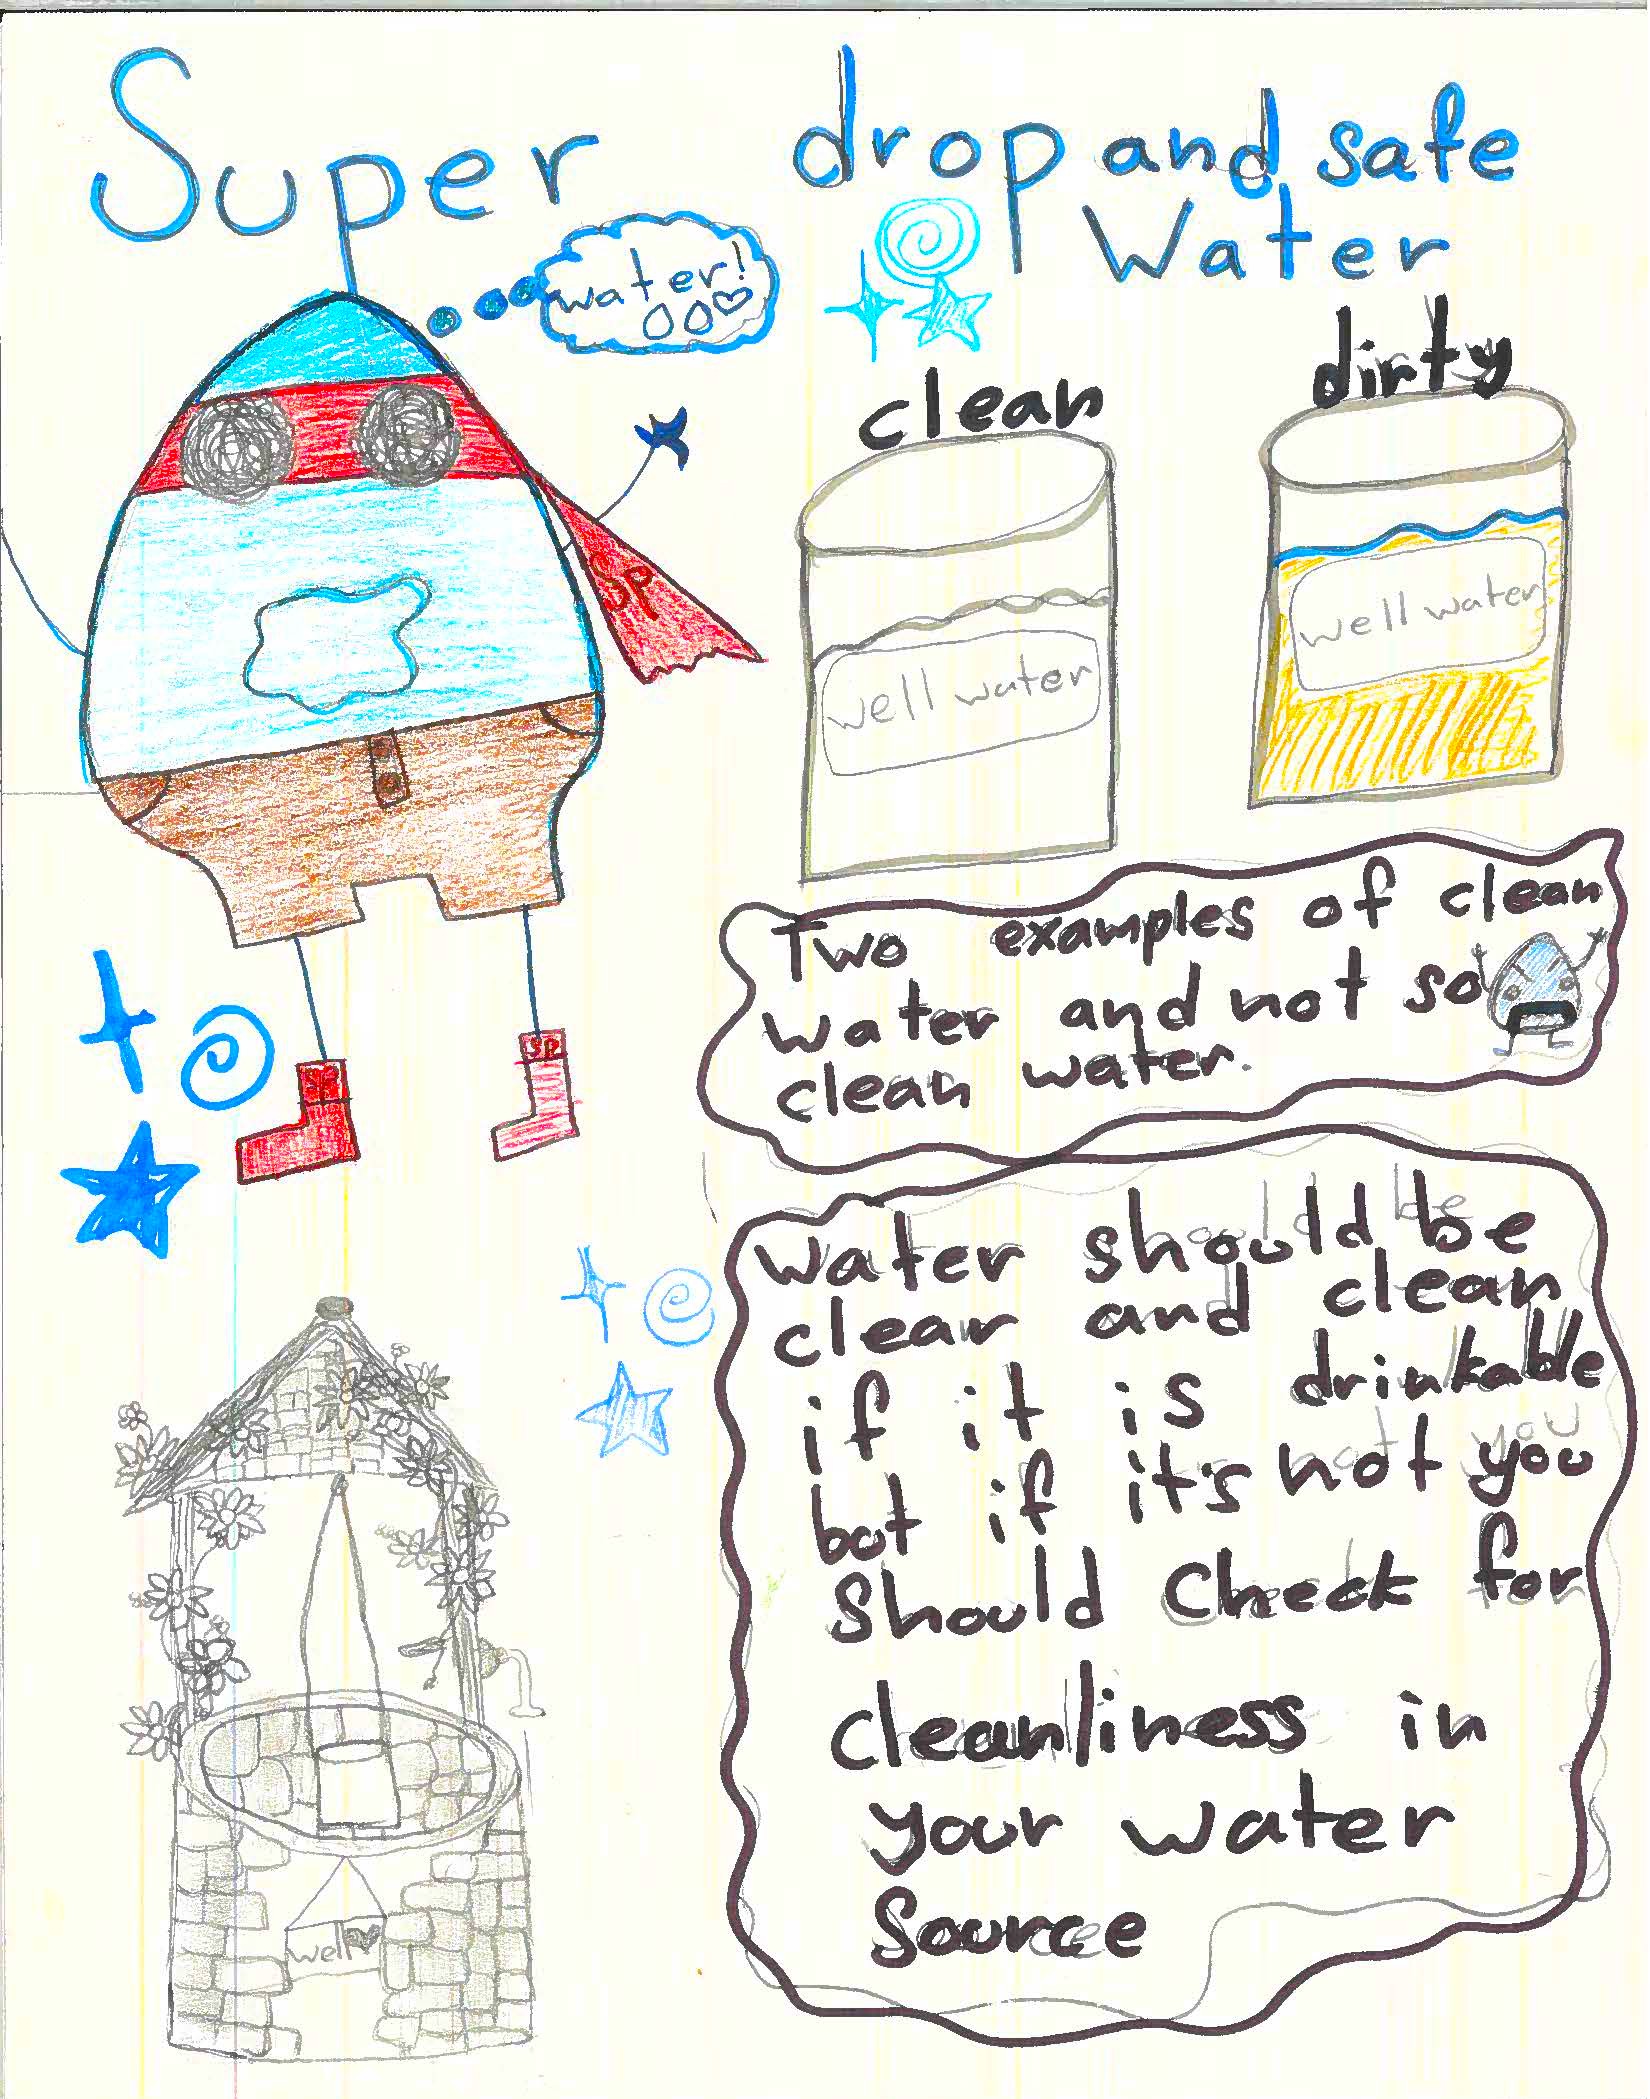 Super drop and safe
Water
water!
clean
dirty
SP
well water
well water
Two examples of clean
water and not so
clean water.
SP
water should be
clear and clean
if it is drinkable
but if it's not you
Should Check for
cleanliness in
your water
Source
well